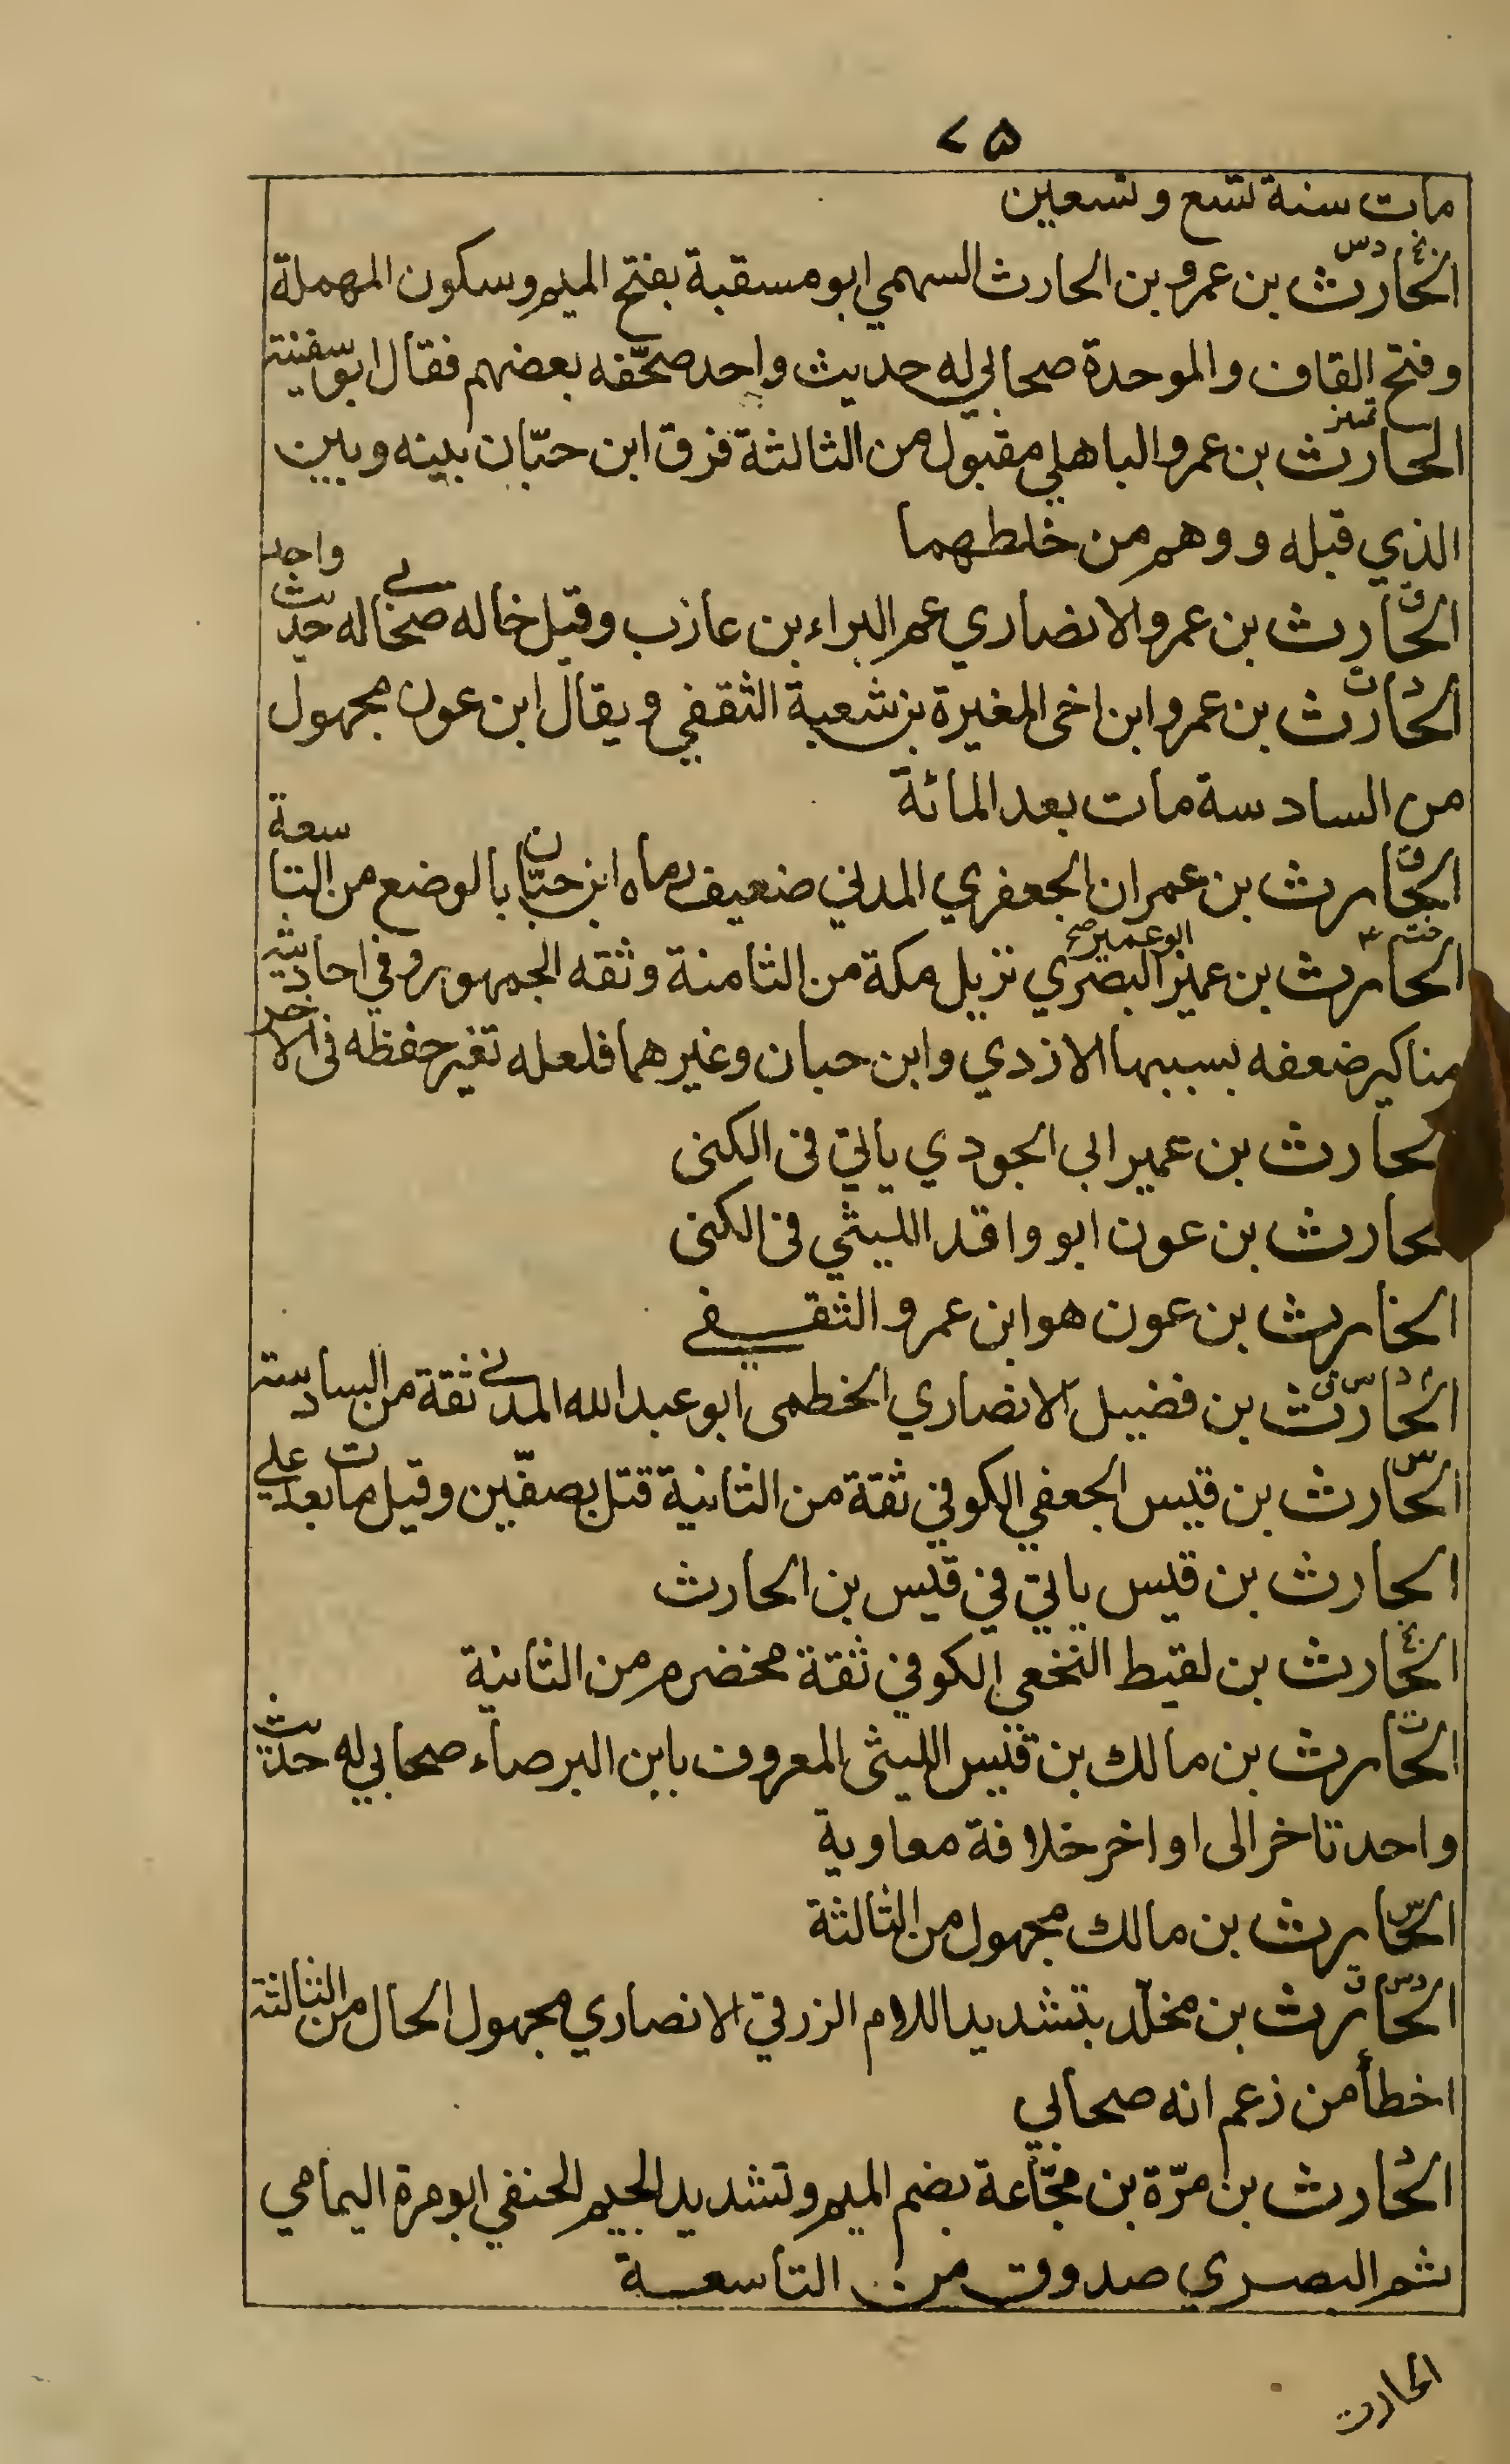 ٧٥
مات سنة تسع وتسعين
بخ د س
الحارث بن عمرو بن الحارث السهمي ابو مسقبة بفتح الميم وسكون المهملة
وفتح القاف والموحدة صحابي له حديث واحد صحّفه بعضهم فقال ابو سفينة
تمييز
الحارث بن عمرو الباهلي مقبول من الثالثة فرق ابن حبّان بينه وبين
الذي قبله ووهم من خلطهما
ق
الحارث بن عمرو الانصاري عم البراء بن عازب وقيل خاله صحابي له حديث واحد
د ت
الحارث بن عمرو ابن اخي المغيرة بن شعبة الثقفي ويقال ابن عون مجهول
من السادسة مات بعد المائة
ق
الحارث بن عمران الجعفري المدني ضعيف رماه ابن حبّان بالوضع من التاسعة
خت ٤
الحارث بن عمير ابو عمير صح البصري نزيل مكة من الثامنة وثقه الجمهور وفي احاديثه
مناكير ضعفه بسببها الازدي وابن حبان وغيرهما فلعله تغير حفظه في الاخر
الحارث بن عمير ابي الجودي ياتي في الكنى
الحارث بن عون ابو واقد الليثي في الكنى
الحارث بن عون هو ابن عمرو الثقفي
د س ق
الحارث بن فضيل الانصاري الخطمي ابو عبد الله المدني ثقة من السادسة
س
الحارث بن قيس الجعفي الكوفي ثقة من الثانية قتل بصفّين وقيل مات بعد علي
الحارث بن قيس ياتي في قيس بن الحارث
بخ
الحارث بن لقيط النخعي الكوفي ثقة مخضرم من الثانية
ت
الحارث بن مالك بن قيس الليثي المعروف بابن البرصاء صحابي له حديث
واحد تاخر الى اواخر خلافة معاوية
س
الحارث بن مالك مجهول من الثالثة
د س ق
الحارث بن مخلّد بتشديد اللام الزرقي الانصاري مجهول الحال من الثالثة
اخطأ من زعم انه صحابي
د
الحارث بن مرّة بن مجّاعة بضم الميم وتشديد الجيم الحنفي ابو مرة اليمامي
ثم البصري صدوق من التاسعة
الحارث